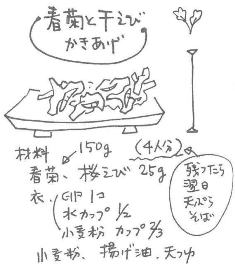 春菊と干えび
かきあげ
材料 150g (4人分)
春菊、桜えび 25g
衣、卵 1コ
水カップ 1/2
小麦粉 カップ 2/3
小麦粉、揚げ油、天つゆ
残ったら
翌日
天ぷら
そば